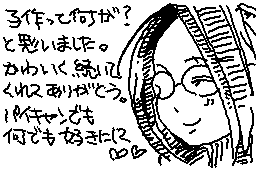 子作って何が?
と思いました。
かわいく続いて
くれてありがとう。
パイキャンでも
何でも好きに